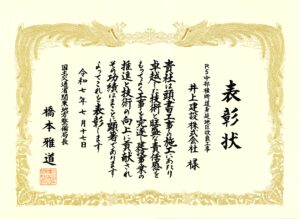 表彰状
井上建設株式会社 様
貴社は頭書工事の施工にあたり
卓越した技術と旺盛な責任感を
もってよく工事を完遂し建設事業の
推進と技術の向上に貢献され
その功績はまことに顕著であります
よってこれを表彰します
令和七年七月十七日
国土交通省関東地方整備局長
橋本雅道